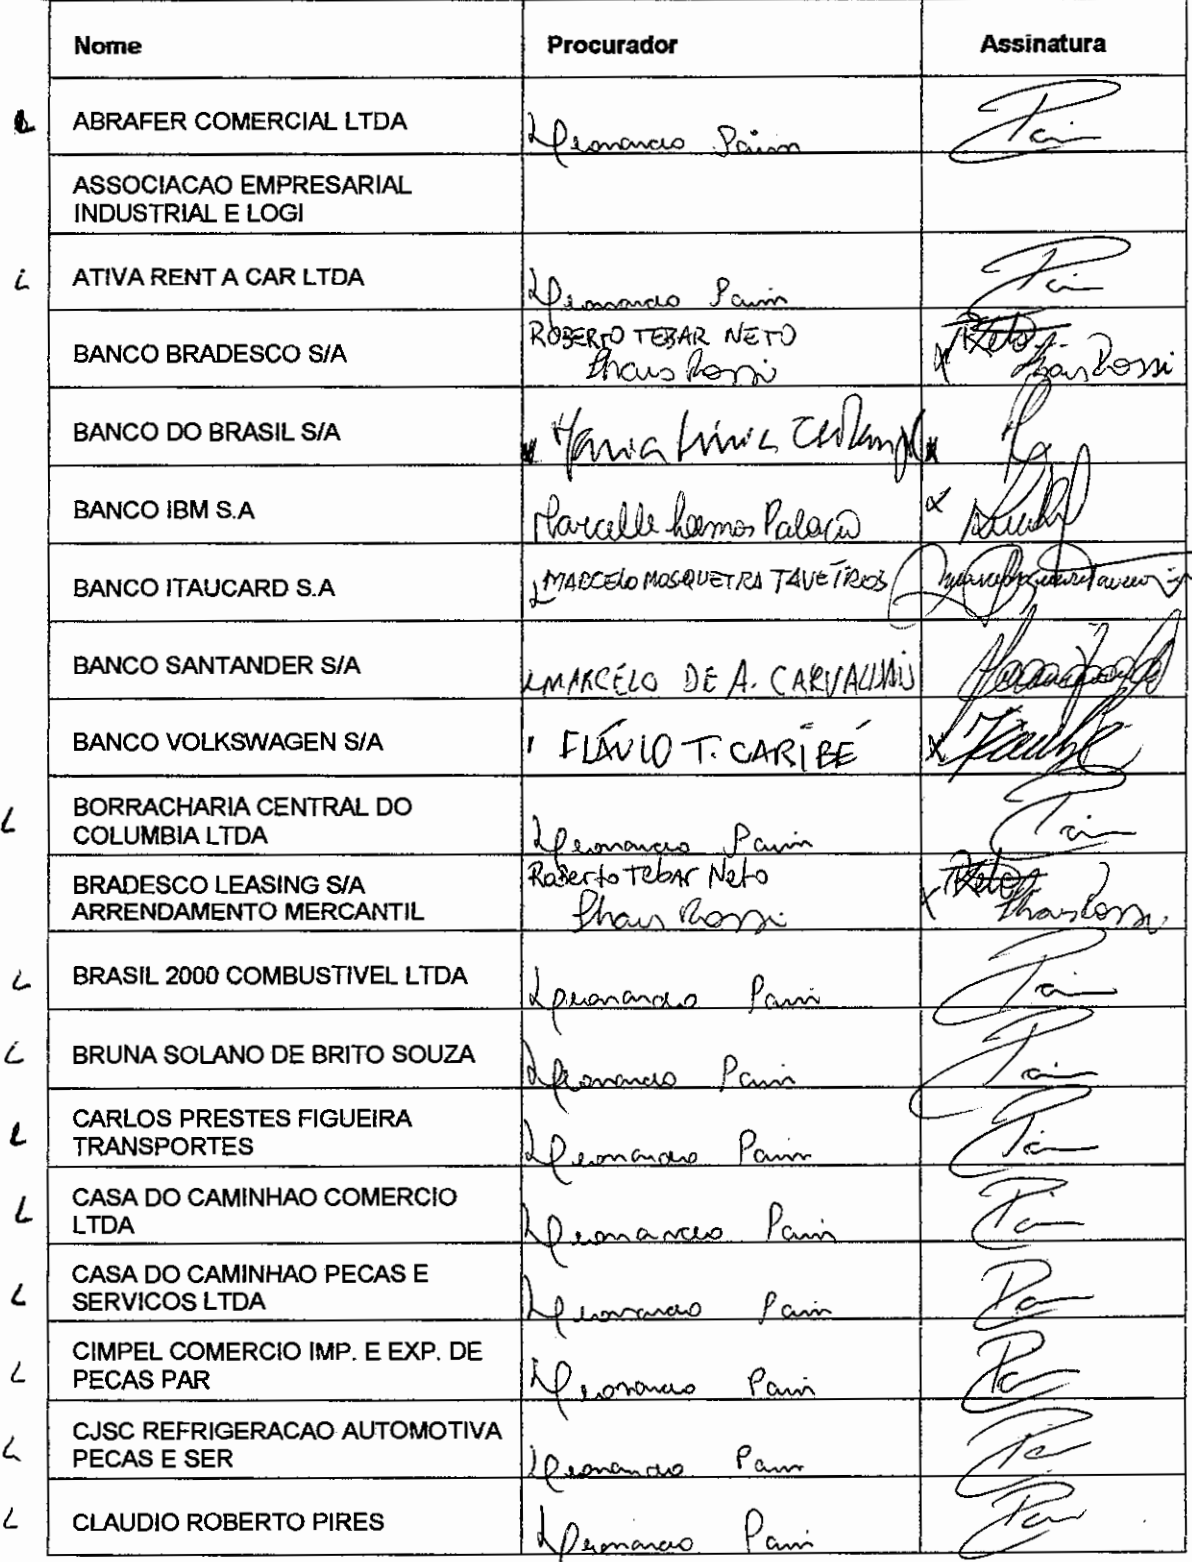 Nome Procurador Assinatura
L ABRAFER COMERCIAL LTDA Leonardo Paim
ASSOCIACAO EMPRESARIAL
INDUSTRIAL E LOGI
L ATIVA RENT A CAR LTDA Leonardo Paim
BANCO BRADESCO S/A ROBERTO TEBAR NETO
Thais Rossi X Thais Rossi
BANCO DO BRASIL S/A
BANCO IBM S.A Marcelle Lemos
BANCO ITAUCARD S.A MARCELO MOSQUEIRA TAVEIROS
BANCO SANTANDER S/A MARCELO DE A.
BANCO VOLKSWAGEN S/A FLÁVIO T. CARIBÉ X
L BORRACHARIA CENTRAL DO
COLUMBIA LTDA Leonardo Paim
BRADESCO LEASING S/A Roberto Tebar Neto
ARRENDAMENTO MERCANTIL Thais Rossi X Thais Rossi
L BRASIL 2000 COMBUSTIVEL LTDA Leonardo Paim
L BRUNA SOLANO DE BRITO SOUZA Leonardo Paim
L CARLOS PRESTES FIGUEIRA
TRANSPORTES Leonardo Paim
L CASA DO CAMINHAO COMERCIO
LTDA Leonardo Paim
L CASA DO CAMINHAO PECAS E
SERVICOS LTDA Leonardo Paim
L CIMPEL COMERCIO IMP. E EXP. DE
PECAS PAR Leonardo Paim
L CJSC REFRIGERACAO AUTOMOTIVA
PECAS E SER Leonardo Paim
L CLAUDIO ROBERTO PIRES Leonardo Paim